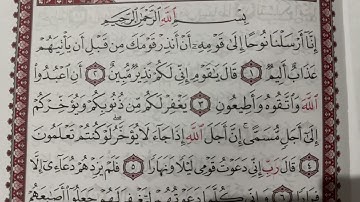 بِسْمِ اللَّهِ الرَّحْمَٰنِ الرَّحِيمِ
إِنَّا أَرْسَلْنَا نُوحًا إِلَىٰ قَوْمِهِ أَنْ أَنذِرْ قَوْمَكَ مِن قَبْلِ أَن يَأْتِيَهُمْ
عَذَابٌ أَلِيمٌ ١ قَالَ يَٰقَوْمِ إِنِّي لَكُمْ نَذِيرٌ مُّبِينٌ ٢ أَنِ اعْبُدُوا
اللَّهَ وَاتَّقُوهُ وَأَطِيعُونِ ٣ يَغْفِرْ لَكُم مِّن ذُنُوبِكُمْ وَيُؤَخِّرْكُمْ
إِلَىٰ أَجَلٍ مُّسَمًّى إِنَّ أَجَلَ اللَّهِ إِذَا جَاءَ لَا يُؤَخَّرُ لَوْ كُنتُمْ تَعْلَمُونَ
٤ قَالَ رَبِّ إِنِّي دَعَوْتُ قَوْمِي لَيْلًا وَنَهَارًا ٥ فَلَمْ يَزِدْهُمْ دُعَاءِي إِلَّا
فِرَارًا ٦ وَإِنِّي كُلَّمَا دَعَوْتُهُمْ لِتَغْفِرَ لَهُمْ جَعَلُوا أَصَٰبِعَهُمْ